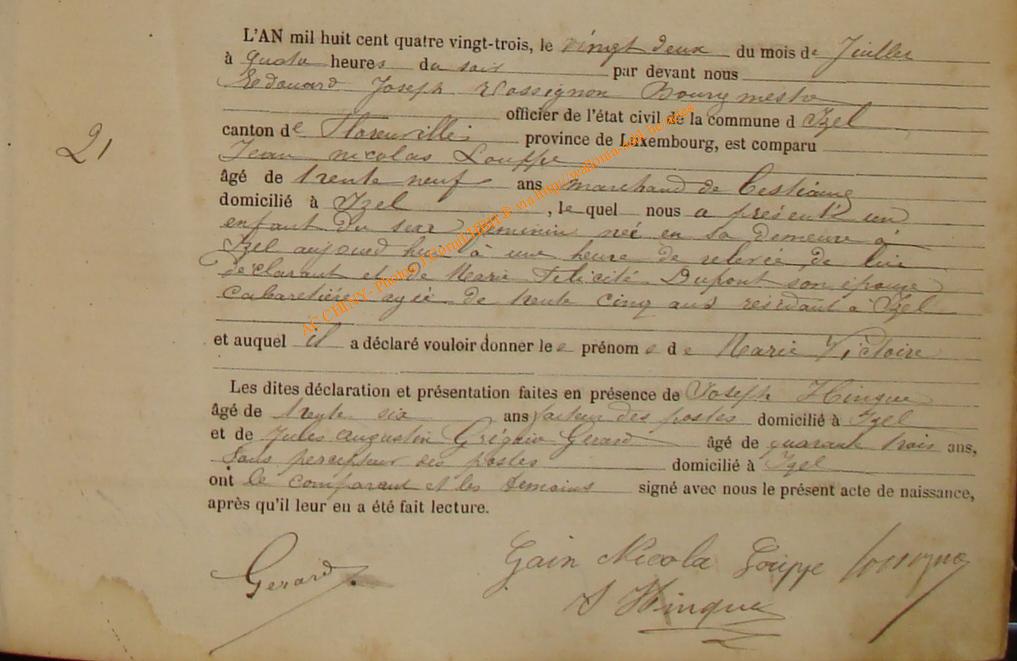 L'AN mil huit cent quatre vingt-trois, le vingt deux du mois de Juillet
à quatre heures du soir par devant nous
Edouard Joseph Rossignon Bourgmestre
officier de l'état civil de la commune d Izel
canton de Florenville province de Luxembourg, est comparu
21
Jean nicolas Louppe
âgé de trente neuf ans marchand de bestiaux
domicilié à Izel, le quel nous a présenté un
enfant du sexe feminin née en sa demeure à
Izel aujourd hui à une heure de relevée, de lui
déclarant et de Marie Félicité Dupont son épouse
cabaretière agée de trente cinq ans résidant à Izel
et auquel il a déclaré vouloir donner le s prénom s d e Marie Victoire
Les dites déclaration et présentation faites en présence de Joseph Hinque
âgé de trente six ans facteur des postes domicilié à Izel
et de Jules augustin Grégoire Gerard âgé de quarante trois ans,
Sous percepteur des postes domicilié à Izel
ont le comparant et les témoins signé avec nous le présent acte de naissance,
après qu'il leur en a été fait lecture.
Gerard
Gain Nicola Louppe
J Hinque
AC CHINY - Photos